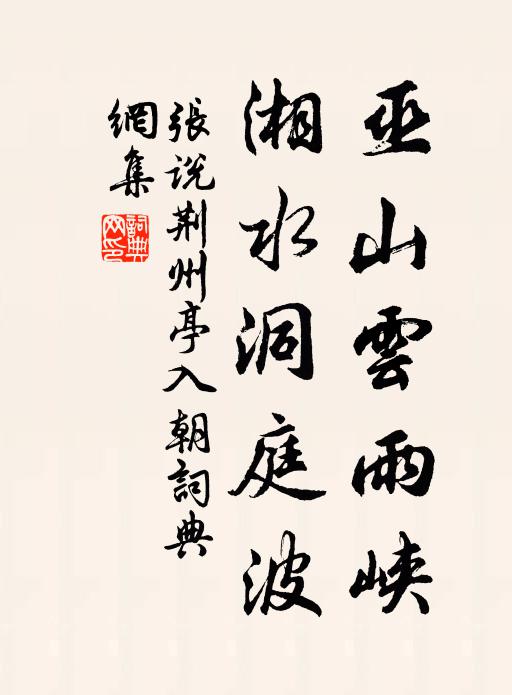 巫山雲雨峡
湘水洞庭波
張説荆州亭入朝詞典
網集
詞典
网印